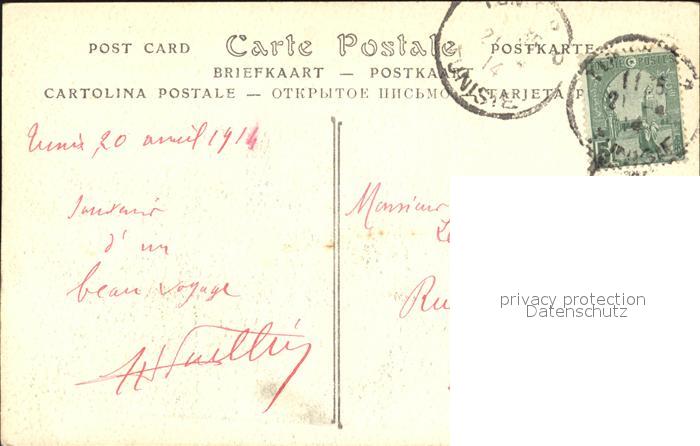 POST CARD Carte Postale POSTKARTE
BRIEFKAART — POSTKAART
CARTOLINA POSTALE — ОТКРЫТОЕ ПИСЬМО TARJETA P
TUNISIE
14
POSTES
11
21
5
Tunis, 20 avril 1914
Souvenir
d'un
beau voyage
Monsieur
Ru
privacy protection
Datenschutz